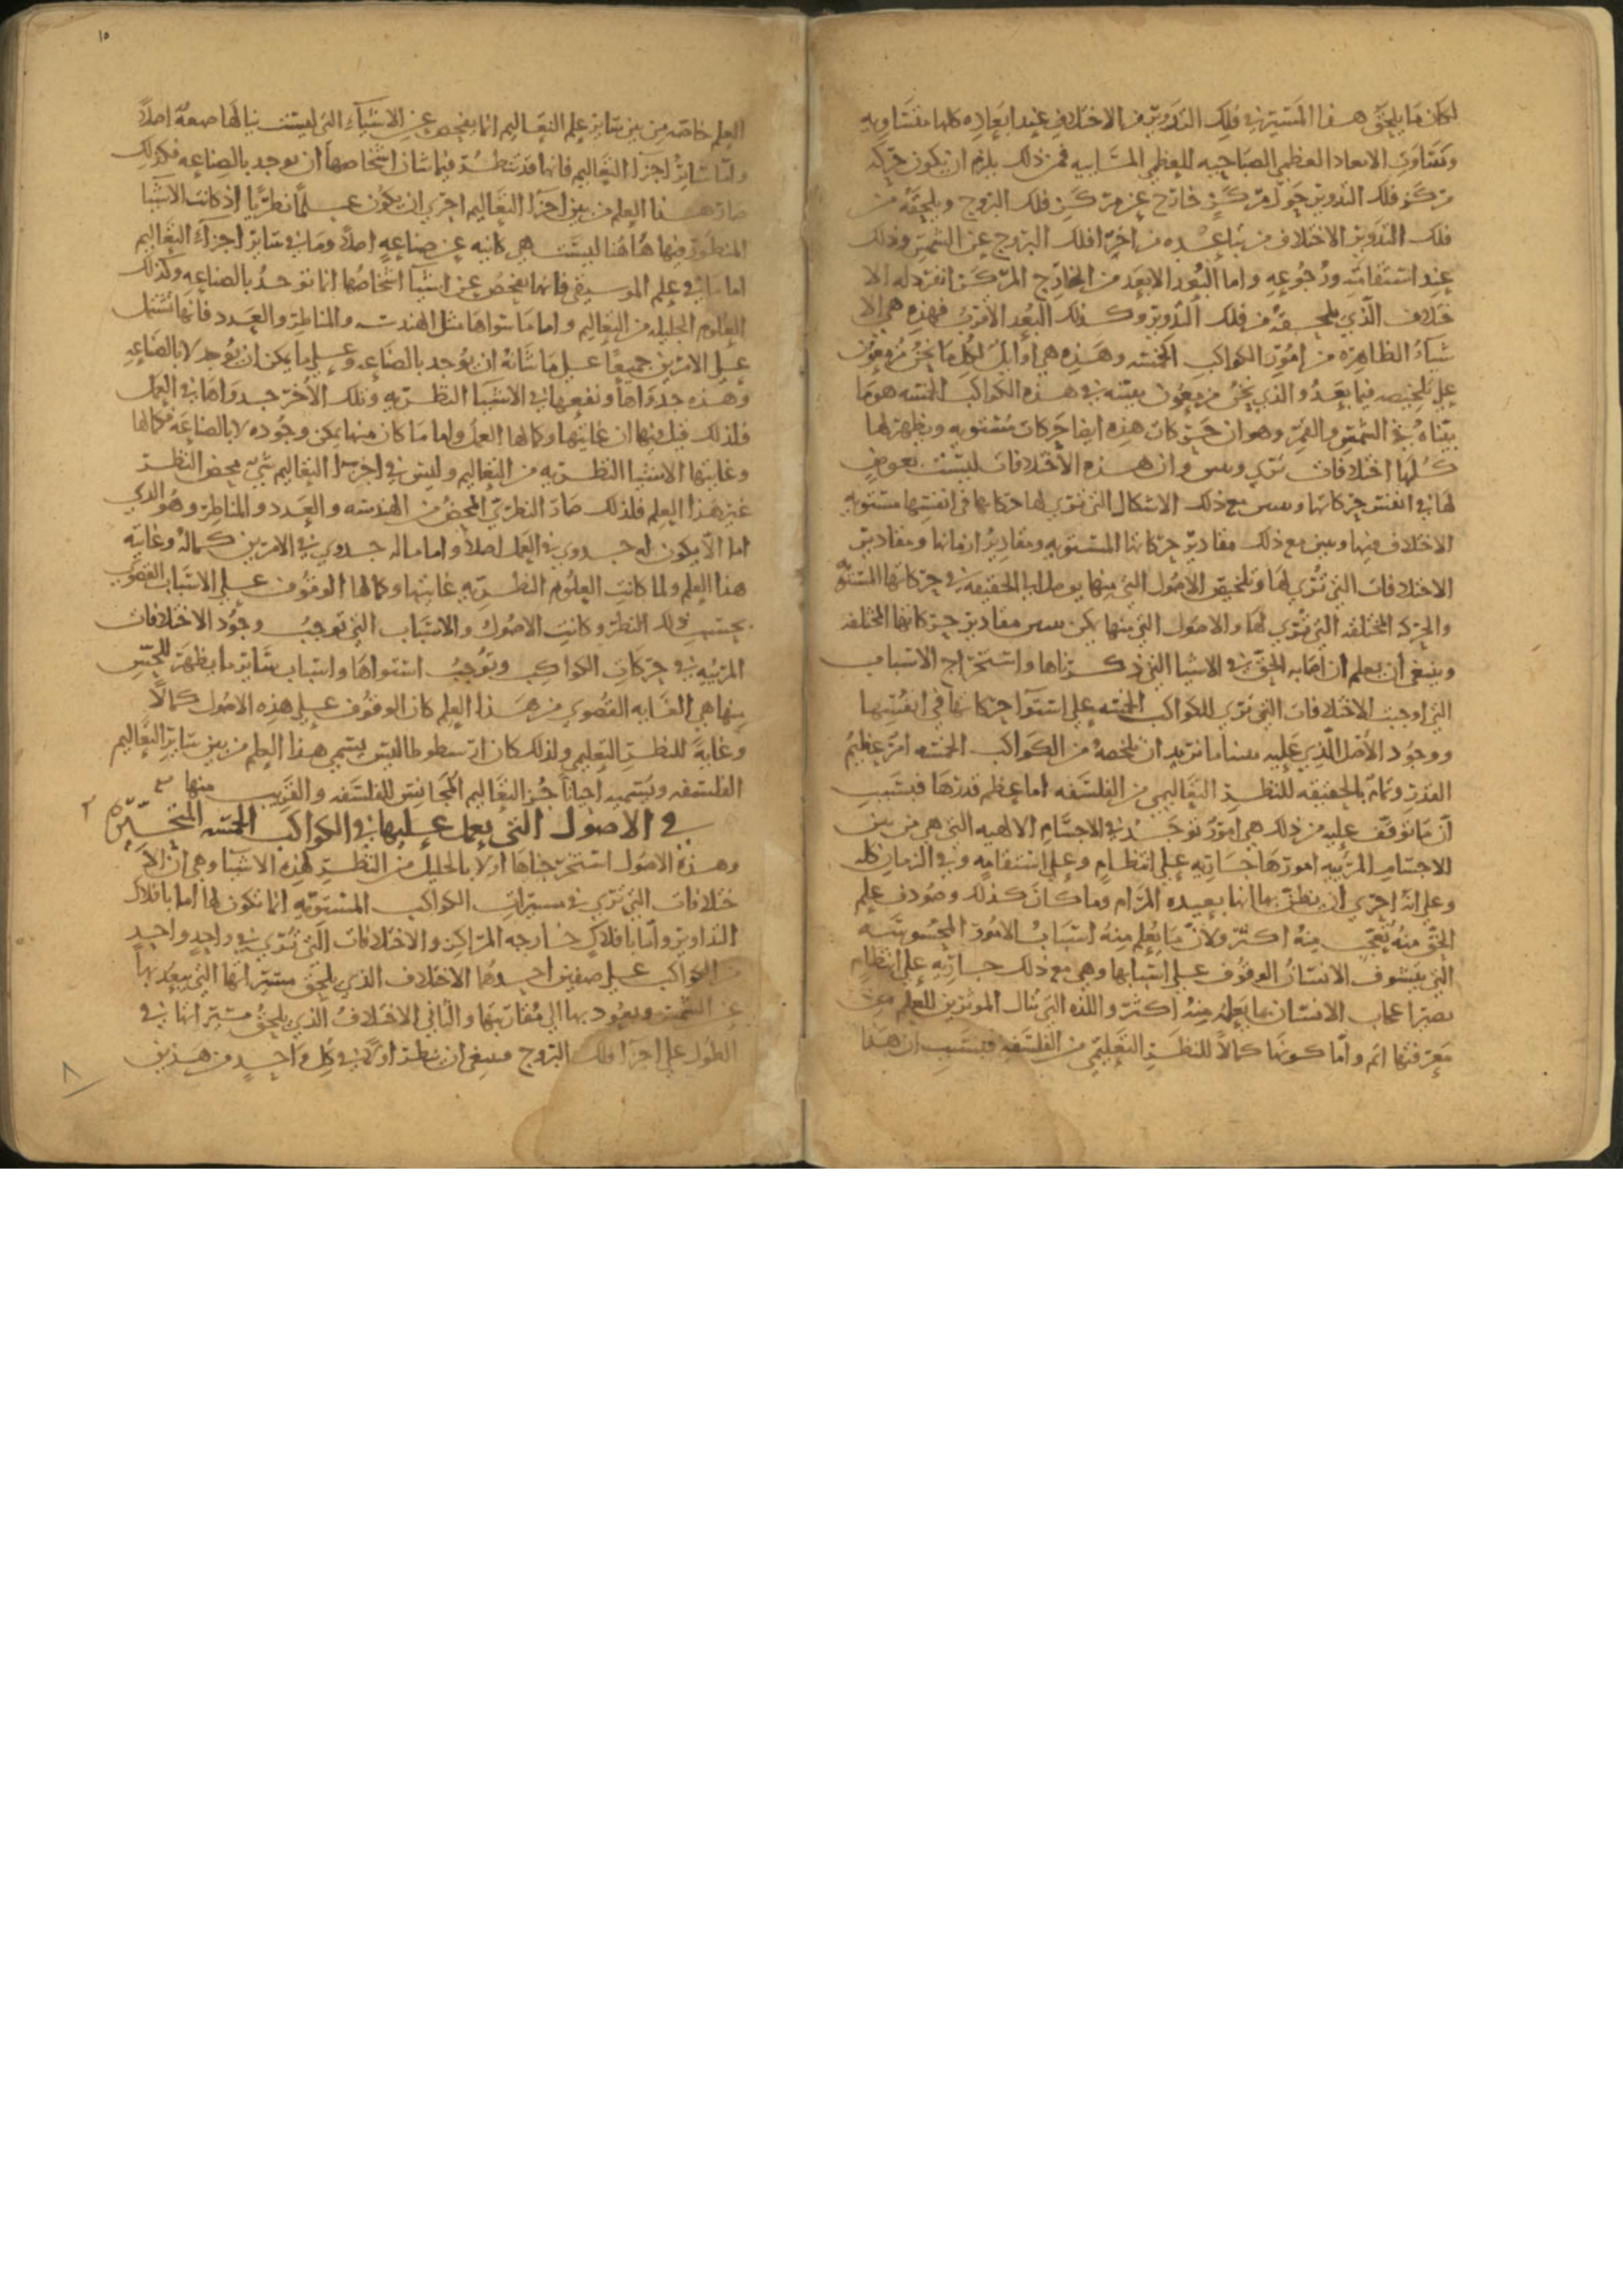 لكان ما يلحق هذا المسير في فلك التدوير من الاختلاف عند ابعاده كلها متساويه
وتساوت الابعاد العظمى الصباحيه للعظمى المسائيه فمن ذلك يلزم ان يكون حركه
مركز فلك التدوير حول مركز خارج عن مركز فلك البروج ويلحقه من
فلك التدوير الاختلاف من تباعده من اجزا فلك البروج عن الشمس وذلك
عند استقامته ورجوعه واما البعد الابعد من الخارج المركز انفرد له الا
ختلاف الذي يلحقه من فلك التدوير وكذلك البعد الاقرب فهذه هي الا
شيآء الظاهره من امور الكواكب الخمسه وهذه هي اوايل لكل ما نحن مزمعون
على تلخيصه فيما بعد والذي نحن مزمعون بعينه في هذه الكواكب الخمسه هو ما
بيناه في الشمس والقمر وهو ان حركات هذه ايضا حركات مستويه ويظهر لها
كلها اختلافات ترى وان هذه الاختلافات ليست بعوض
لها في انفس حركاتها مع ذلك الاشكال التي ترى لها حركاتها في انفسها مستويه
الاختلاف فيها ونبين مع ذلك مقادير حركاتها المستويه ومقادير ازمانها ومقادير
الاختلافات التي ترى لها وتلخيص الاصول التي منها الحقيقه في حركاتها المستويه
والحركه المختلفه التي ترى لها والاصول التي منها يمكن مقادير حركاتها المختلفه
وينبغي ان يعلم ان اصابه الحق في الاشيا التي ذكرناها واستخراج الاسباب
التي اوجبت الاختلافات التي ترى للكواكب الخمسه على استوآ حركاتها في انفسها
ووجود الاصل الذي عليه ما نريد ان نلخصه من الكواكب الخمسه امر عظيم
القدر وتمام بالحقيقه للنظر التعاليمي من الفلسفه اما عظم قدرها فبسبب
ان ما نوقف عليه من ذلك هي امور توجد في الاجسام الالهيه التي هي من بين
الاجسام المرييه امورها جاريه على انتظام وعلى استقامه وفي الزمان كله
وعلى انه احرى ان يظن بها انها بعيده المرام وما كان كذلك وصودف علم
الحق منه تعجب منه اكثر ولان ما يعلم منه اسباب الامور المحسوسه
التي يتشوف الانسان الوقوف على اسبابها وهي مع ذلك جاريه على انتظام
اعجاب الانسان بما يعلم منه اكثر واللذه التي تنال الموثرين للعلم من
معرفتها اتم واما كونها كمالا للنظر التعليمي من الفلسفه فبسبب ان هذا
١٥
العلم خاصه من بين ساير علم التعاليم انما يفحص عن الاشيآء التي ليست تنالها صنعه اصلاً
واما ساير اجزا التعاليم فانها قد تنظر فيما شان اشخاصها ان يوجد بالصناعه فلذلك
صار هذا العلم من بين اجزا التعاليم احرى ان يكون علماً نظريا اذ كانت الاشيا
المنظور فيها هاهنا ليست هي كاينه عن صناعه اصلا وما في ساير اجزآء التعاليم
اما ما في علم الموسيقى فانها تفحص عن اشيآ اشخاصها انما توجد بالصناعه وكذلك
العلوم الجليله من التعاليم واما ما سواها مثل الهندسه والمناظر والعدد فانها تشتمل
على الامرين جميعاً على ما شانه ان يوجد بالصناعه وعلى ما يمكن ان يوجد لا بالصناعه
وهذه جدواها ونفعها في الاشيا النظريه وتلك الاخر جدواها في العمل
فلذلك قيل فيها ان غايتها وكمالها العمل واما ما كان منها يمكن وجوده لا بالصناعه فكمالها
وغايتها الاشيا النظريه من التعاليم وليس في اجزا التعاليم شي محض النظر
غير هذا العلم فلذلك صار النظري المحض من الهندسه والعدد والمناظر وهو الذي
اما الا يكون له جدوى في العمل اصلاً واما ما له جدوى في الامرين كماله وغايته
هذا العلم ولما كانت العلوم النظريه غايتها وكمالها الوقوف على الاسباب القصوى
بحسب ذلك النظر وكانت الاصول والاسباب التي توجب وجود الاختلافات
المرييه في حركات الكواكب وتوجب استواها واسباب ساير ما يظهر للحس
منها هي الغايه القصوى من هذا العلم كان الوقوف على هذه الاصول كمالا
وغاية للنظر التعليمي ولذلك كان ارسطوطاليس يسمى هذا العلم من بين ساير التعاليم
الفلسفه ويسميه احياناً جزء التعاليم المجانس للفلسفه والقريب منها
في الاصول التي يعمل عليها في الكواكب الخمسه المتحيره
وهذه الاصول استخرجناها اولا بالحليل من النظر لهذه الاشيا وهي ان الا
ختلافات التي ترى في مسيرات الكواكب المستويه انما تكون لها اما بافلاك
التداوير واما بافلاك خارجه المراكز والاختلافات التي ترى في واحد واحد
من الكواكب على صنفين احدهما الاختلاف الذي يلحق مسيراتها التي يبعد بها
عن الشمس ويعود بها الى مقارنتها والثاني الاختلاف الذي يلحق مسيراتها في
الطول على اجزا فلك البروج فينبغي ان ننظر اولا في كل واحد من هذين
٨